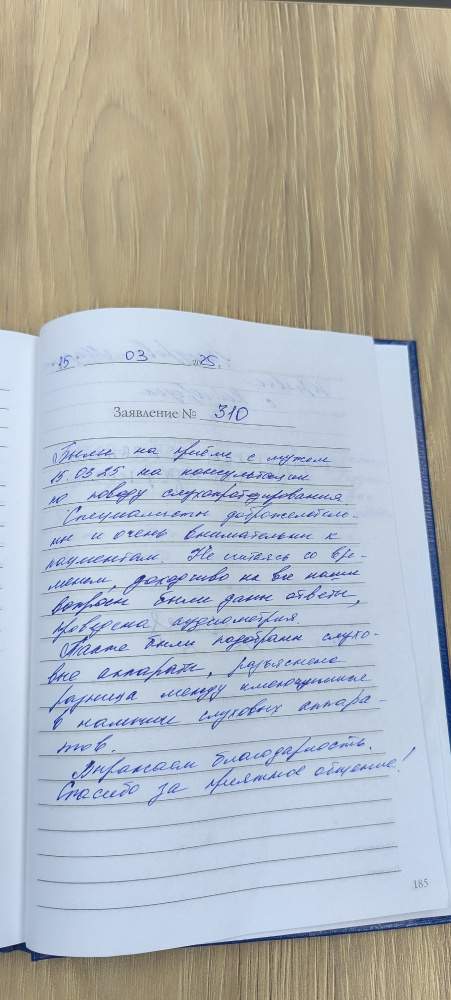 15 03 2025
Заявление № 310
Были на приёме с мужем
15.03.25 на консультации
по поводу слухопротезирования
Специалисты доброжелатель-
ны и очень внимательны к
пациентам. Не считаясь со вре-
менем, доходчиво на все наши
вопросы были даны ответы,
проведена аудиометрия.
Также были подобраны слухо-
вые аппараты, разъяснена
разница между имеющимися
в наличии слуховых аппара-
тов.
Выражаем благодарность.
Спасибо за приятное общение!
185